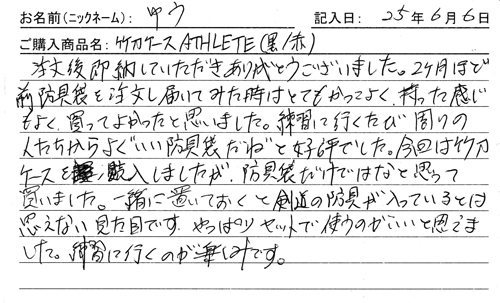 お名前(ニックネーム): ゆう 記入日: 25年6月6日
ご購入商品名: 竹刀ケースATHLETE(黒/赤)
注文後即納していただきありがとうございました。2ヶ月ほど
前防具袋を注文し届いてみた時はとてもかっこよく、持った感じ
もよく、買ってよかったと思いました。練習に行くたび周りの
人たちからよく"いい防具袋だね"と好評でした。今回は竹刀
ケースを購入しましたが、防具袋だけではなと思って
買いました。一緒に置いておくと剣道の防具が入っているとは
思えない見た目です。やっぱりセットで使うのがいいと思いま
した。練習に行くのが楽しみです。